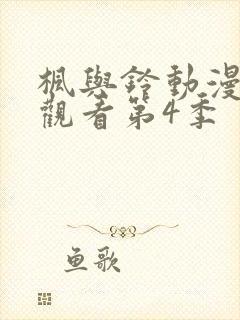 楓與鈴動漫
觀看第4季
鱼歌